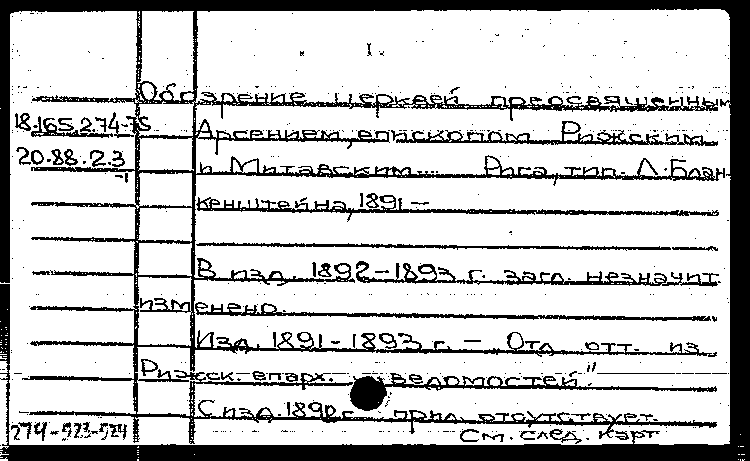 I.
Обозрение церквей преосвященным
18.165.2.74-75 Арсением, епископом Рижским
20.88.2.3 и Митавским.... Рига, тип. Л. Блан-
-1
кенштейна, 1891 —
В изд. 1892-1893 г. загл. незначит
изменено.
Изд. 1891-1893 г. — Отд отт. из
Рижск. епарх. ведомостей."
С изд. 1890 г. прил. отсутствует.
274-523-524 См. след. карт